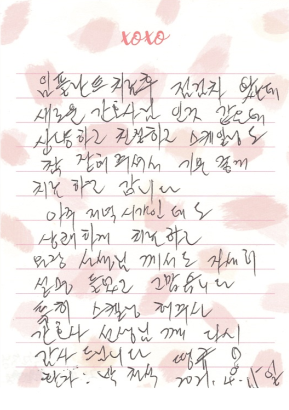 xoxo
임플란트 치료후 점검차 왔는데
새로운 간호사님 인것 같은데
상냥하고 친절하고 스케일링도
꼭 잘 해주셔서 기분 좋게
치료하고 갑니다
아주 저녁시간인데도
상쾌하게 치료하고
원장 선생님께서도 자세히
설명 들었고 고맙습니다
특히 스케일링 해주신
간호사 선생님께 다시
감사 드립니다
환자 : 박 2021. 4. 15일